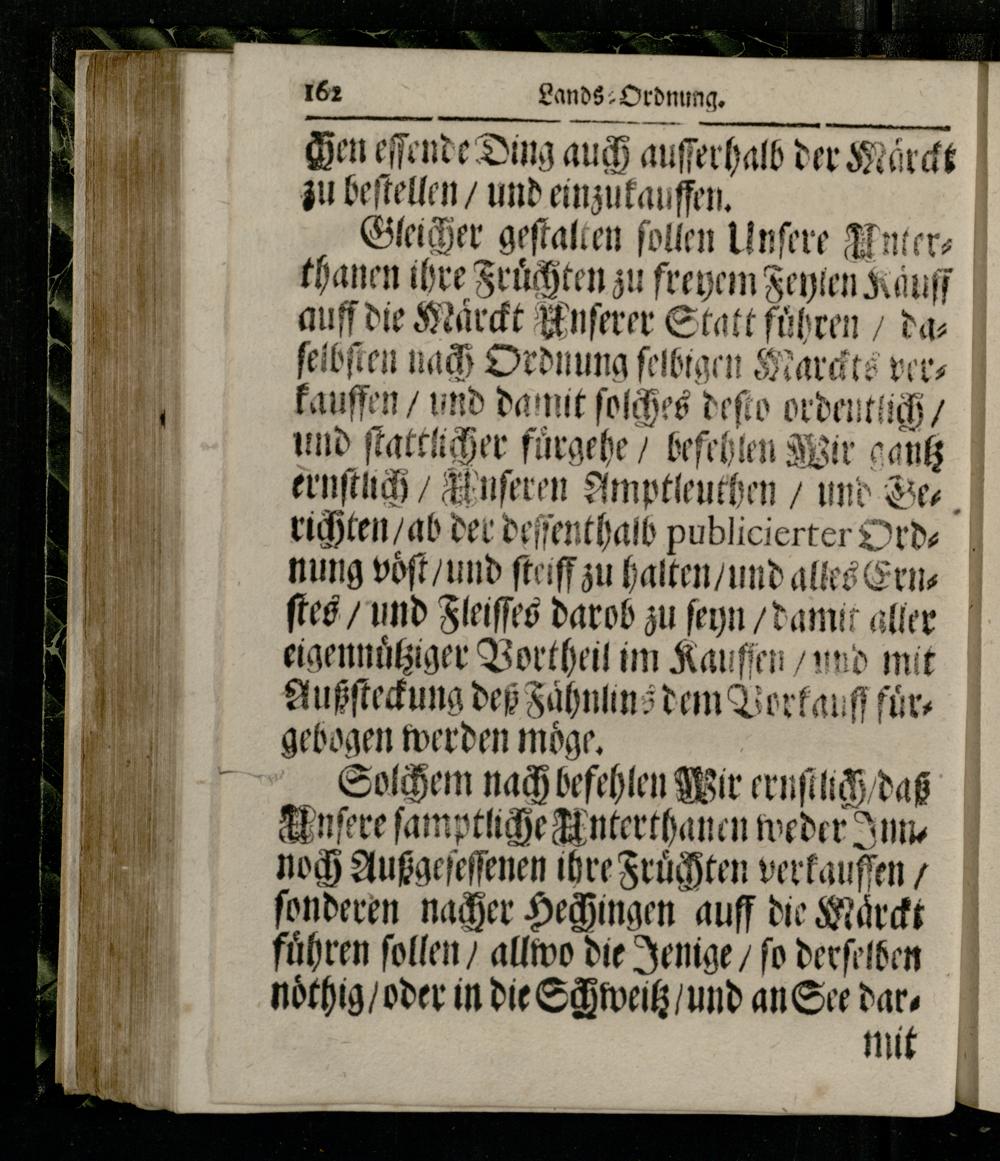 162 Lands-Ordnung.
chen essende Ding auch ausserhalb der Märckt
zu bestellen / und einzukauffen.
Gleicher gestalten sollen Unsere Unter-
thanen ihre Früchten zu freyem Feylen Käuff
auff die Märckt Unserer Statt führen / da-
selbsten nach Ordnung selbigen Marckts ver-
kauffen / und damit solches desto ordentlich /
und stattlicher fürgehe / befehlen Wir gantz
ernstlich / Unseren Amptleuthen / und Ge-
richten / ab der dessenthalb publicierter Ord-
nung vöst / und steiff zu halten / und alles Ern-
stes / und Fleisses darob zu seyn / damit aller
eigennütziger Vortheil im Kauffen / und mit
Außsteckung deß Fähnlins dem Vorkauff für-
gebogen werden möge.
Solchem nach befehlen Wir ernstlich / daß
Unsere samptliche Unterthanen weder Inn-
noch Außgesessenen ihre Früchten verkauffen /
sonderen nacher Hechingen auff die Märckt
führen sollen / allwo die Jenige / so derselben
nöthig / oder in die Schweitz / und an See dar-
mit